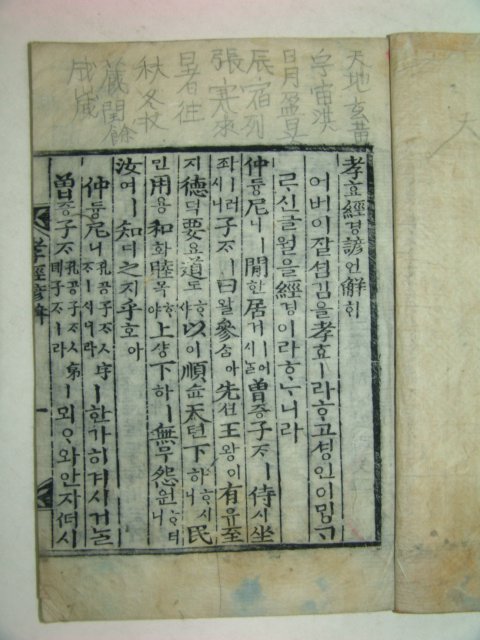 天地玄黃
宇宙洪
日月盈昃
辰宿列
張寒來
暑往
秋冬收
藏閏餘
成歲
天
孝효經경諺언解ᄒᆡ
어버이잘셤김을孝효ㅣ라ᄒᆞ고셩인이ᄆᆡᇰᄀᆞ
ᄅᆞ신글월을經경이라ᄒᆞᄂᆞ니라
仲듕尼니ㅣ閒한居거ㅣ어시ᄂᆞᆯ曾증子ᄌᆞㅣ侍시坐
좌ㅣ러시니子ᄌᆞㅣ曰왈參ᄉᆞᆷ아先션王왕이有유至
지德덕要요道도ᄒᆞ샤以이順슌天텬下하ᄒᆞ시民
민用용和화睦목ᄒᆞ야上샹下하ㅣ無무怨원ᄒᆞ더니
汝여ㅣ知디之지乎호아
仲듕尼니孔공子ᄌᆞㅅ字ᄌᆞㅣ시니라ㅣ한가히겨시거ᄂᆞᆯ
曾증子ᄌᆞ孔공子ᄌᆞㅅ弟뎨子ᄌᆞㅣ라ㅣ뫼ᄋᆞ와안자ᄯᅥ시
孝經諺解 一